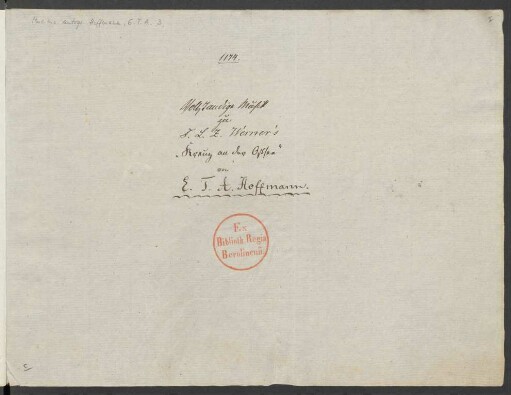 Mus. ms. autogr. Hoffmann, E. T. A. 3
1179.
Vollständige Musik
zu
F. L. Z. Werner's
„Kreuz an der Ostsee"
von
E. T. A. Hoffmann.
Ex
Biblioth. Regia
Berolinensi